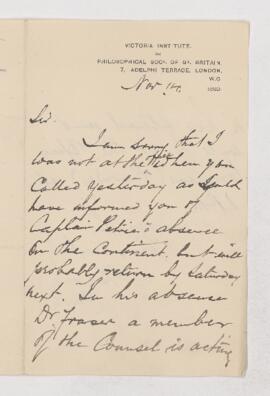 VICTORIA INSTITUTE,
OR
PHILOSOPHICAL SOCY. OF GT. BRITAIN.
7, ADELPHI TERRACE, LONDON,
W.C.
Nov 14.
Sir.
I am sorry that I
was not at the when you
called yesterday as I could
have informed you of
Captain Petrie's absence
on the Continent, but will
probably return by Saturday
next. In his absence
Dr Fraser a member
of the Counsel is acting